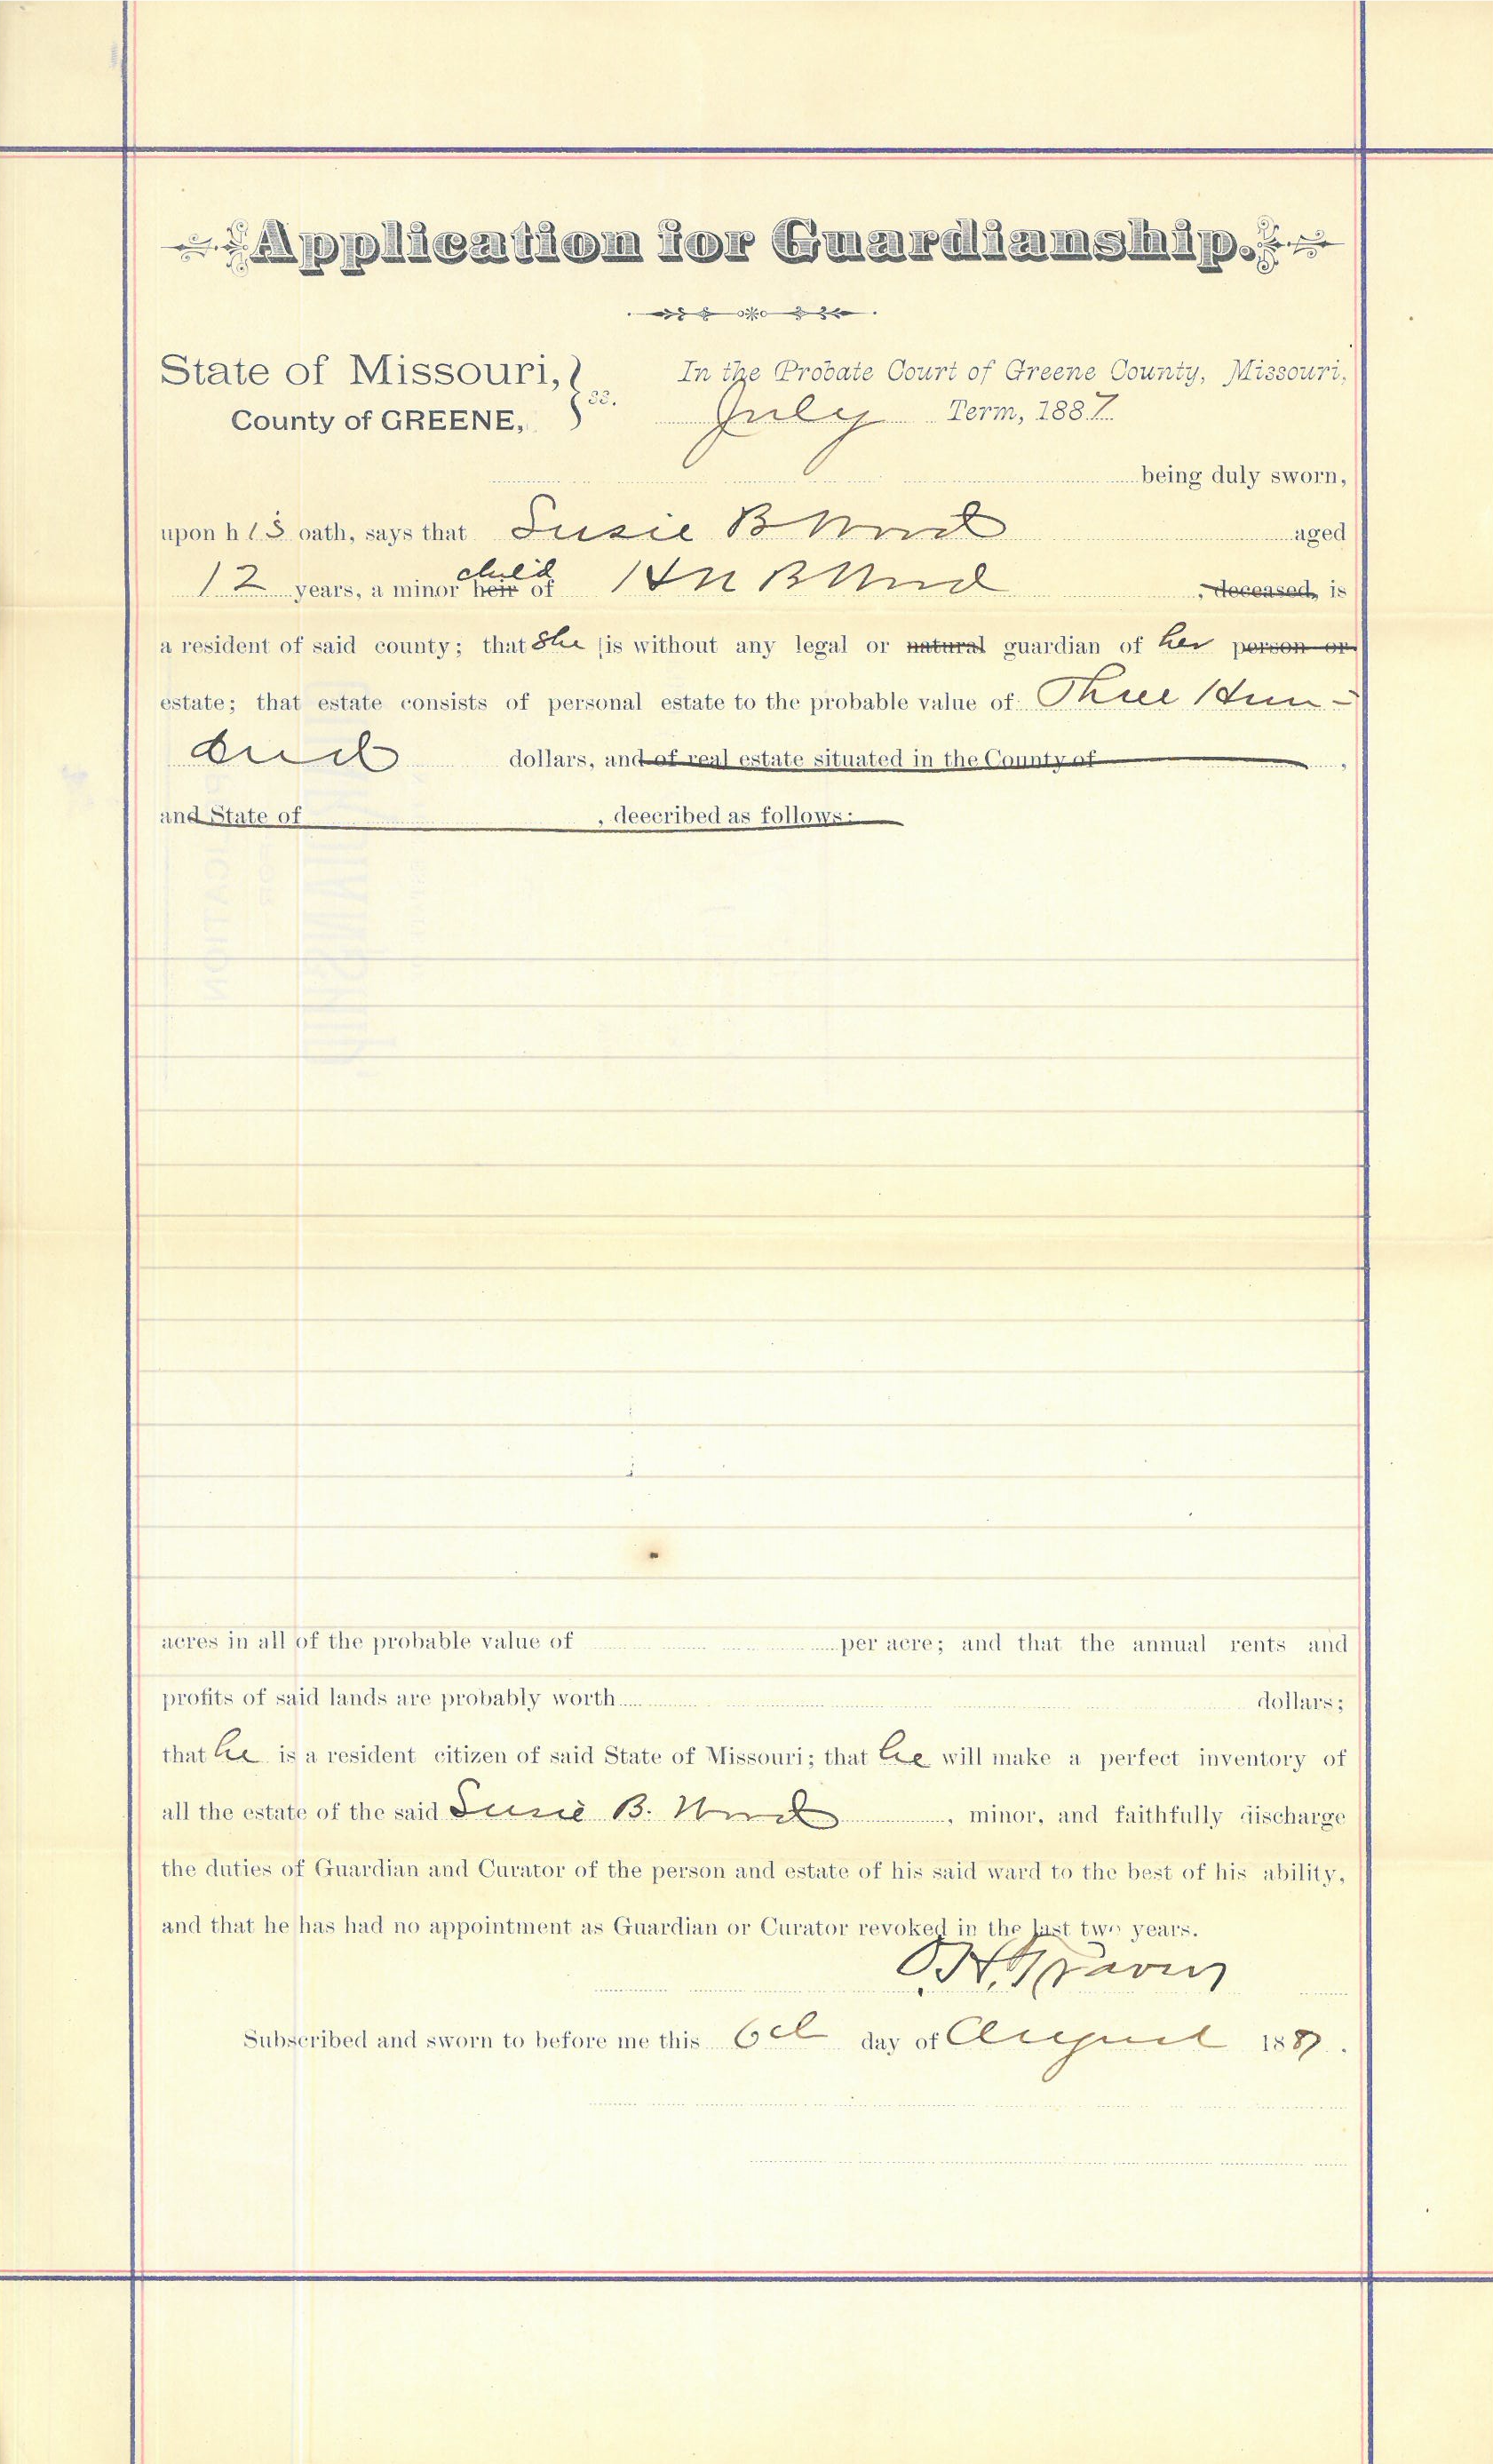 Application for Guardianship.
State of Missouri, } ss. In the Probate Court of Greene County, Missouri,
County of GREENE, July Term, 1887
being duly sworn,
upon his oath, says that Susie B Wood aged
child
12 years, a minor heir of H B Wood , deceased, is
a resident of said county; that she is without any legal or natural guardian of her person or
estate; that estate consists of personal estate to the probable value of Three Hun-
dred dollars, and of real estate situated in the County of ,
and State of , deecribed as follows:
acres in all of the probable value of per acre; and that the annual rents and
profits of said lands are probably worth dollars;
that he is a resident citizen of said State of Missouri; that he will make a perfect inventory of
all the estate of the said Susie B. Wood , minor, and faithfully discharge
the duties of Guardian and Curator of the person and estate of his said ward to the best of his ability,
and that he has had no appointment as Guardian or Curator revoked in the last two years.
O.H. Travers
Subscribed and sworn to before me this 6th day of August 1887.